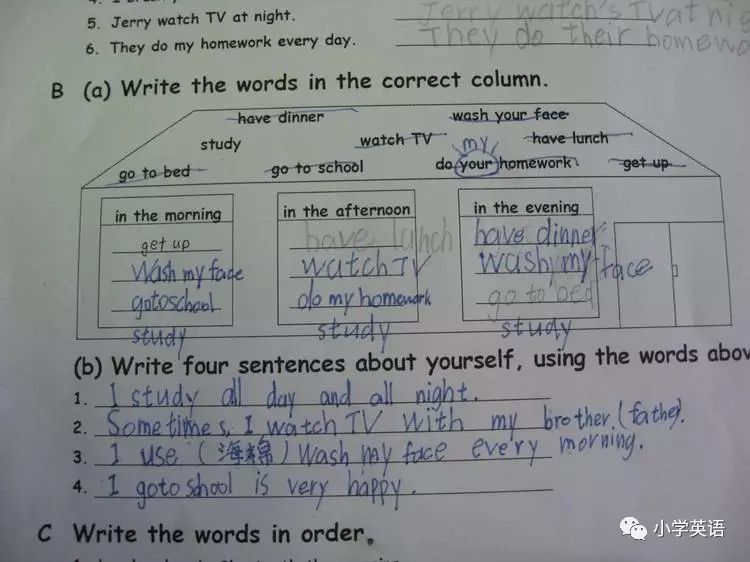 5. Jerry watch TV at night. Jerry watch's TV at nig
6. They do my homework every day. They do their homewo
B (a) Write the words in the correct column.
have dinner wash your face
study watch TV my have lunch
go to bed go to school do your homework get up
in the morning in the afternoon in the evening
get up have lunch have dinner
Wash my face watch TV wash my face
gotoschool do my homework go to bed
study study study
(b) Write four sentences about yourself, using the words abov
1. I study all day and all night.
2. Sometimes, I watch TV with my brother.(father).
3. I use (海棉) wash my face every morning.
4. I goto shool is very happy.
C Write the words in order。
小学英语